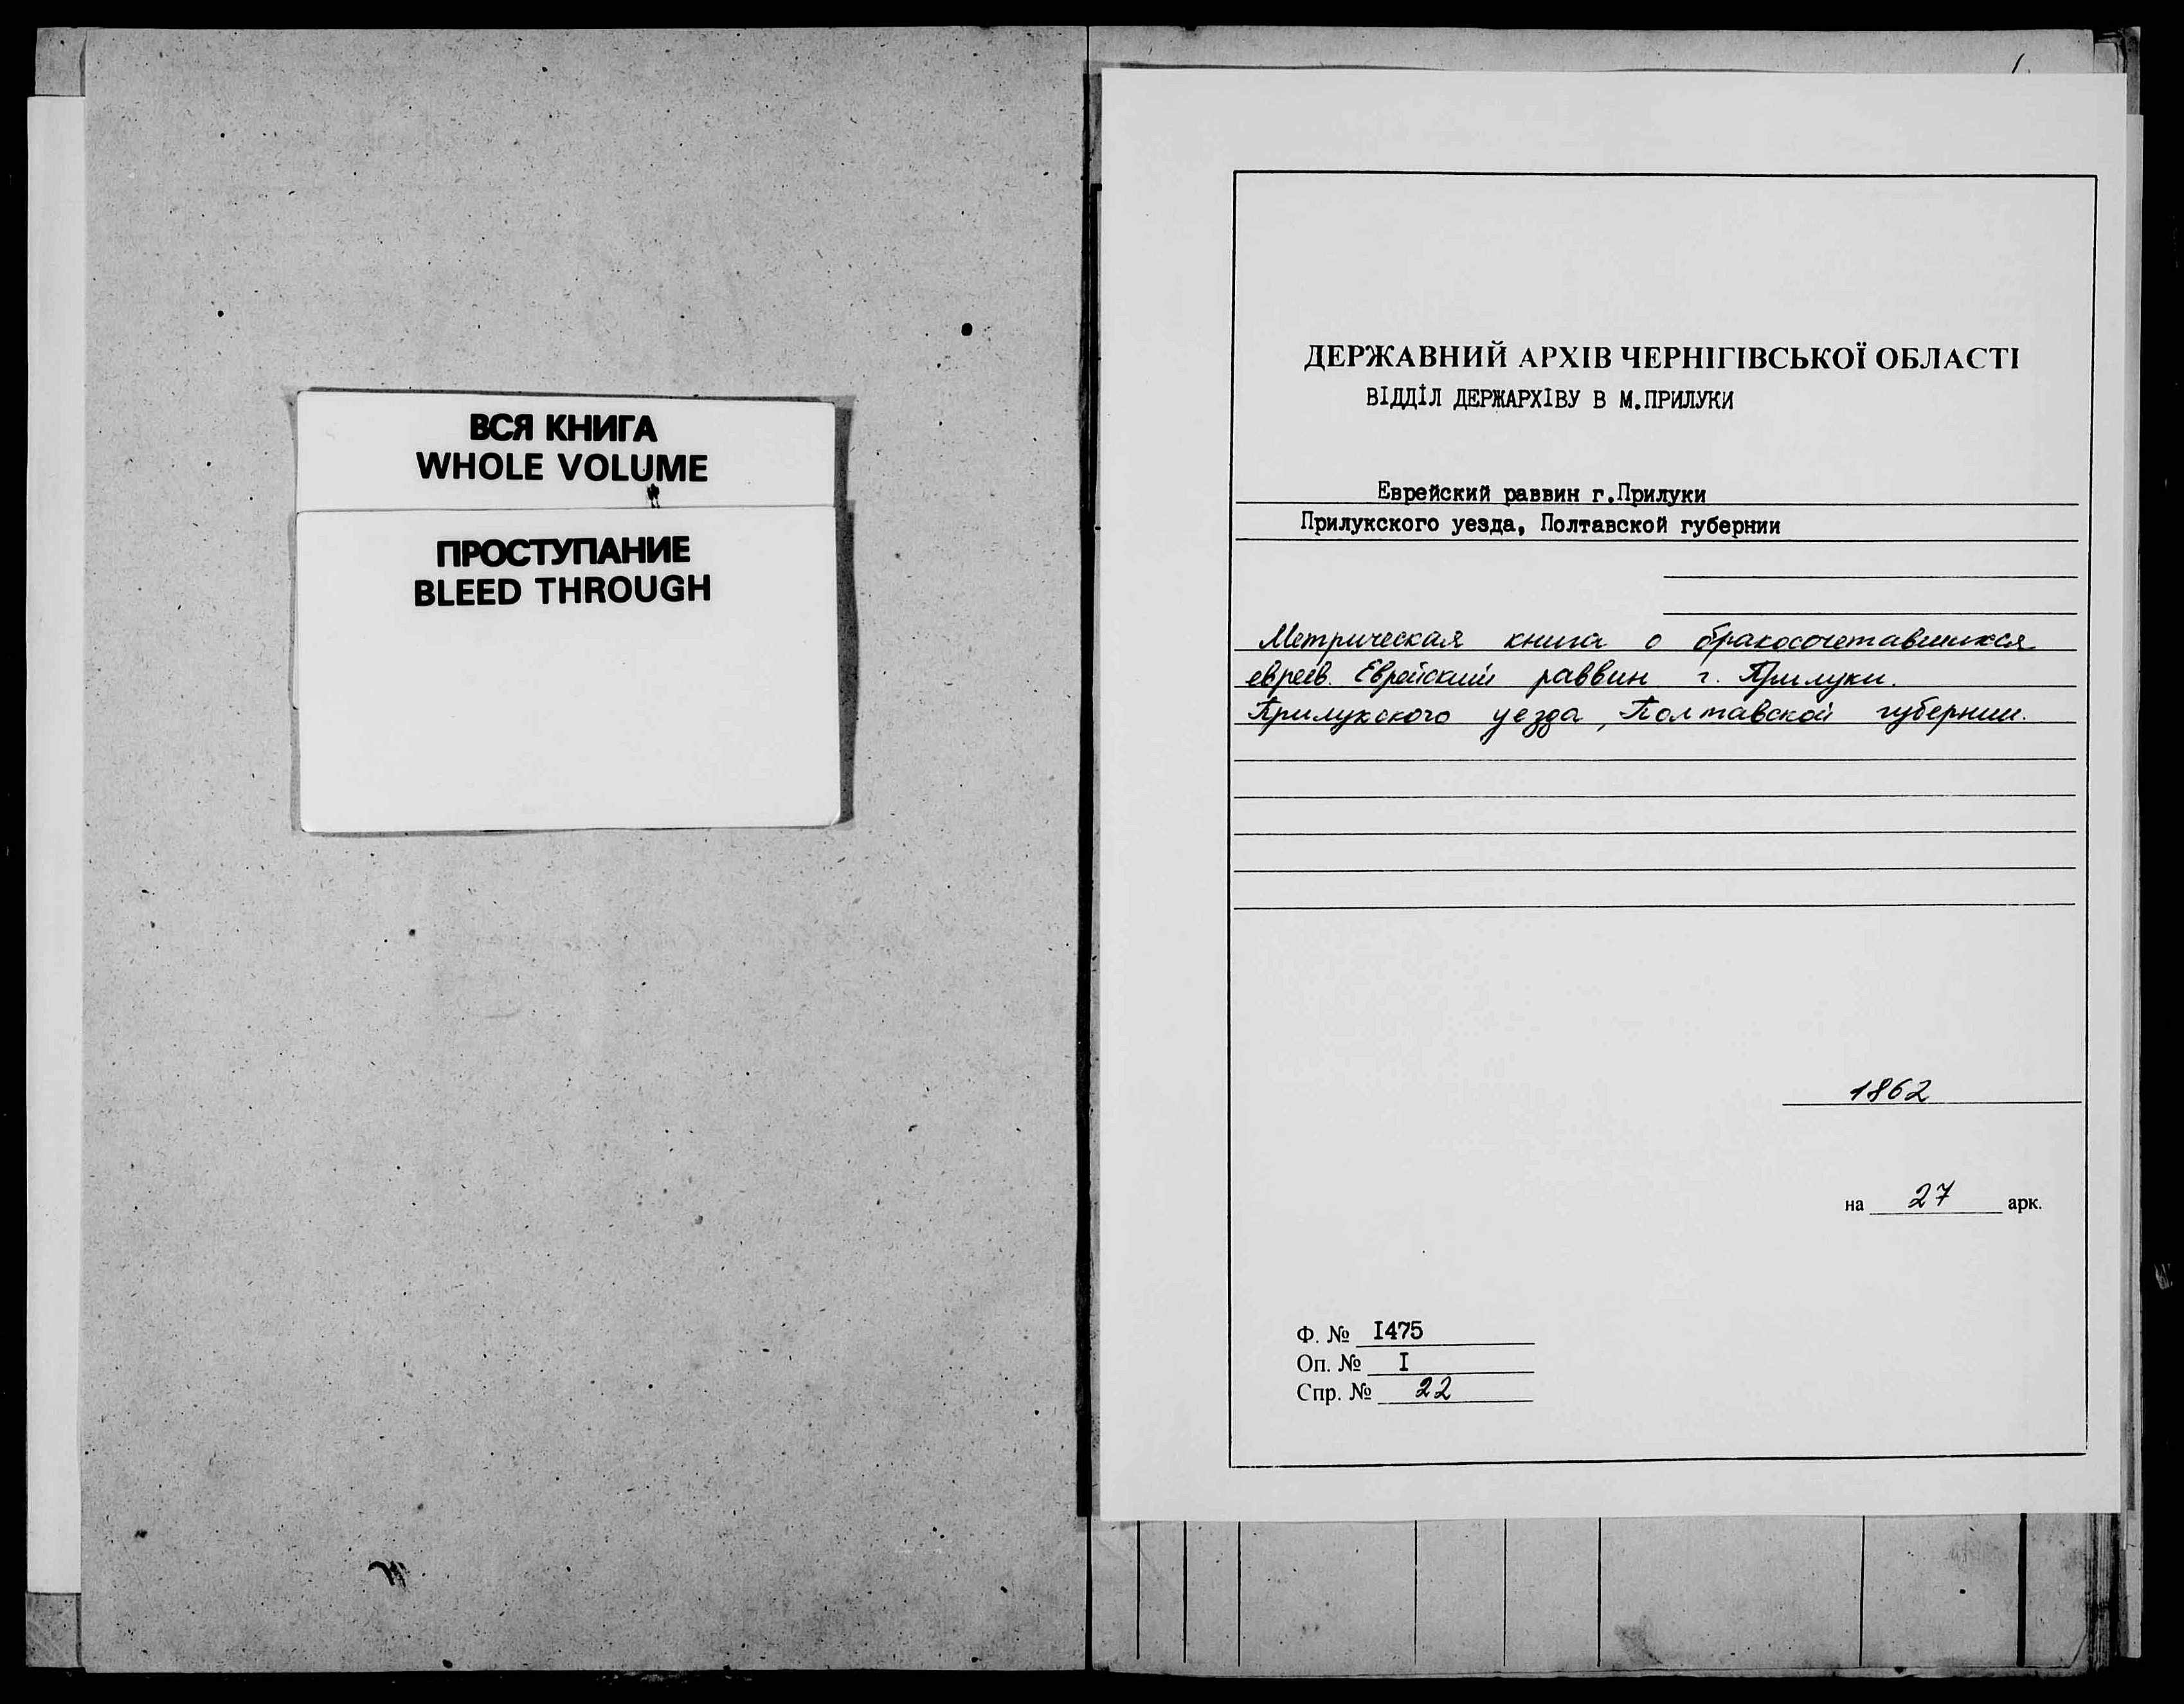 ВСЯ КНИГА
WHOLE VOLUME
ПРОСТУПАНИЕ
BLEED THROUGH
1
ДЕРЖАВНИЙ АРХІВ ЧЕРНІГІВСЬКОЇ ОБЛАСТІ
ВІДДІЛ ДЕРЖАРХІВУ В М.ПРИЛУКИ
Еврейский раввин г.Прилуки
Прилукского уезда, Полтавской губернии
Метрическая книга о бракосочетавшихся
евреев. Еврейский раввин г. Прилуки.
Прилукского уезда, Полтавской губернии.
1862
на 27 арк.
Ф. № I475
Оп. № I
Спр. № 22